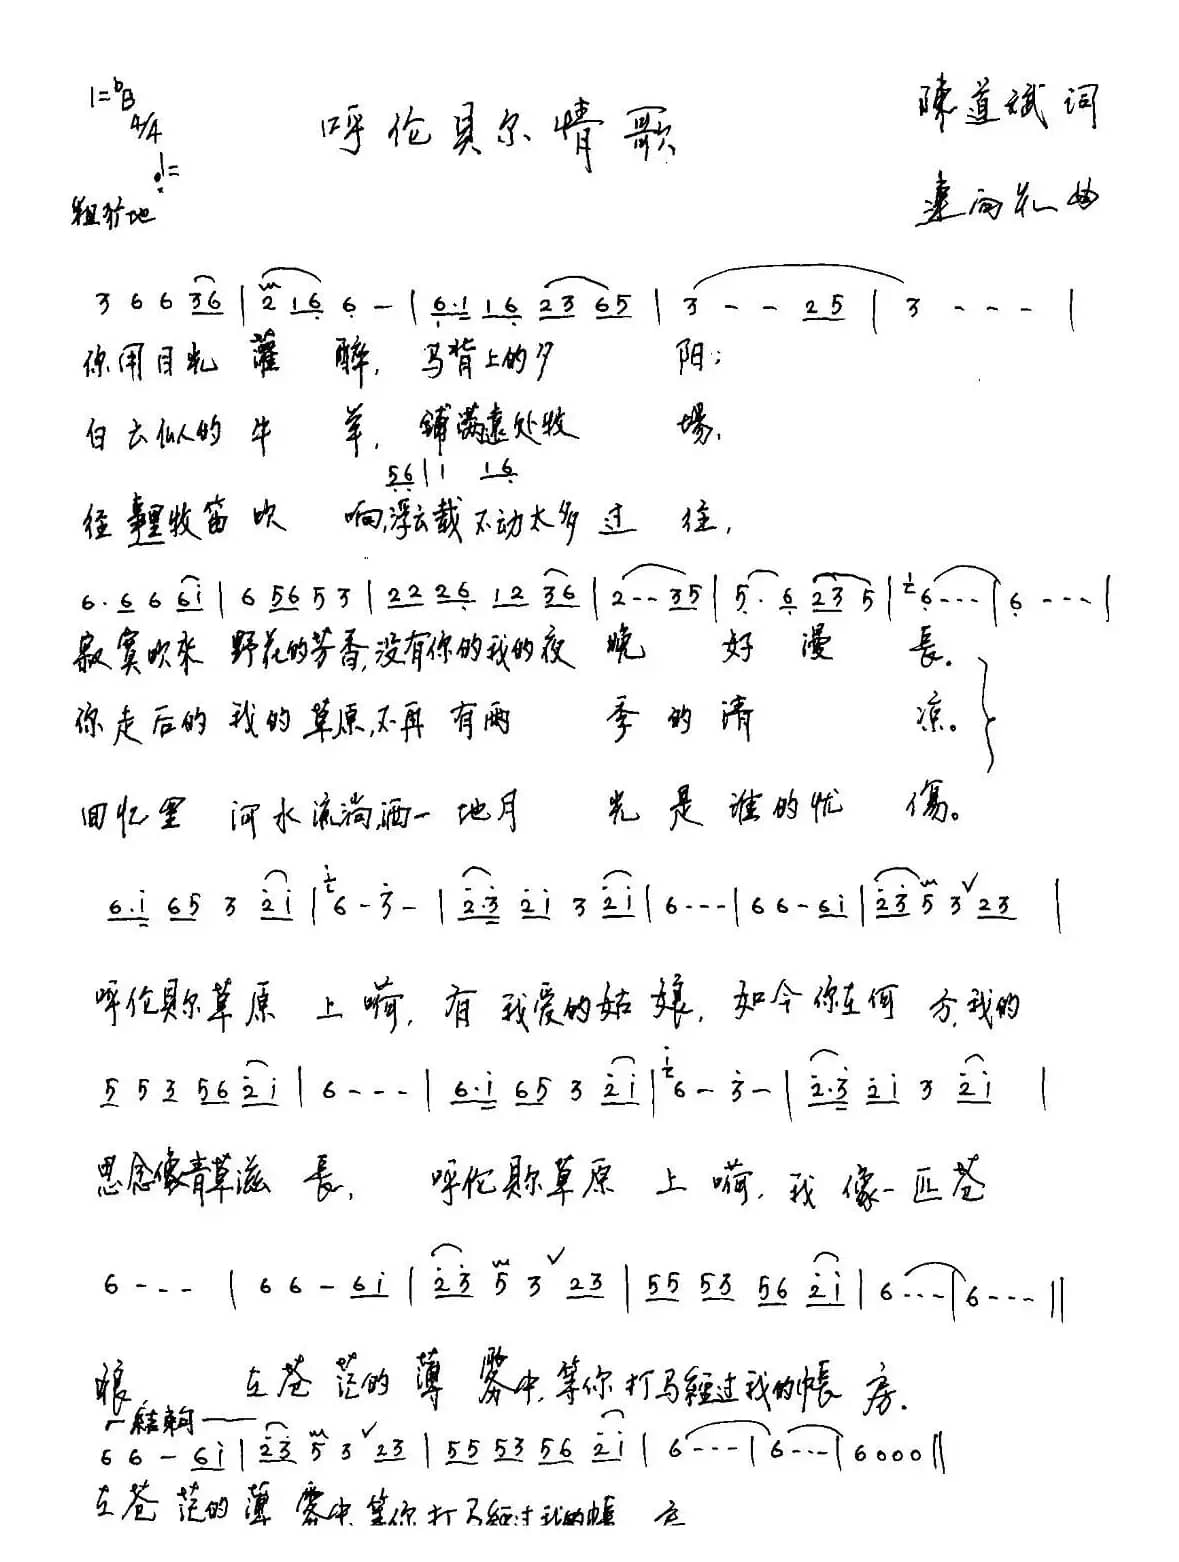 1=ᵇB
4/4
呼伦贝尔情歌
陳道斌词
粗犷地
曲
3 6 6 36 | 2 16 6 - | 6·1 16 23 65 | 3 - - 25 | 3 - - - |
你用目光灌醉，马背上的夕阳；
白云似的牛羊，铺满远处牧場，
56 | 1 16
牧笛吹响，浮云載不动太多过往，
6· 6 6 6i | 6 56 5 3 | 22 26 12 36 | 2 - - 35 | 5· 6 23 5 | 6 - - - | 6 - - - |
寂寞吹来野花的芳香，没有你的我的夜晚好漫長。
你走后的我的草原，不再有两季的清凉。
回忆里河水流淌，洒一地月光是谁的忧傷。
6·i 65 3 2i | 6 - 3 - | 2·3 2i 3 2i | 6 - - - | 6 6 - 6i | 23 5 3 23 |
呼伦贝尔草原上嗬，有我爱的姑娘，如今你在何方，我的
5 5 3 56 2i | 6 - - - | 6·i 65 3 2i | 6 - 3 - | 2·3 2i 3 2i |
思念像青草滋長，呼伦贝尔草原上嗬，我像一匹苍
6 - - - | 6 6 - 6i | 23 5 3 23 | 55 53 56 2i | 6 - - - | 6 - - - ||
狼，在苍茫的薄雾中，等你打马經过我的帳房.
結束句
6 6 - 6i | 23 5 3 23 | 55 53 56 2i | 6 - - - | 6 - - - | 6 0 0 0 ||
在苍茫的薄雾中，等你打马經过我的帳房